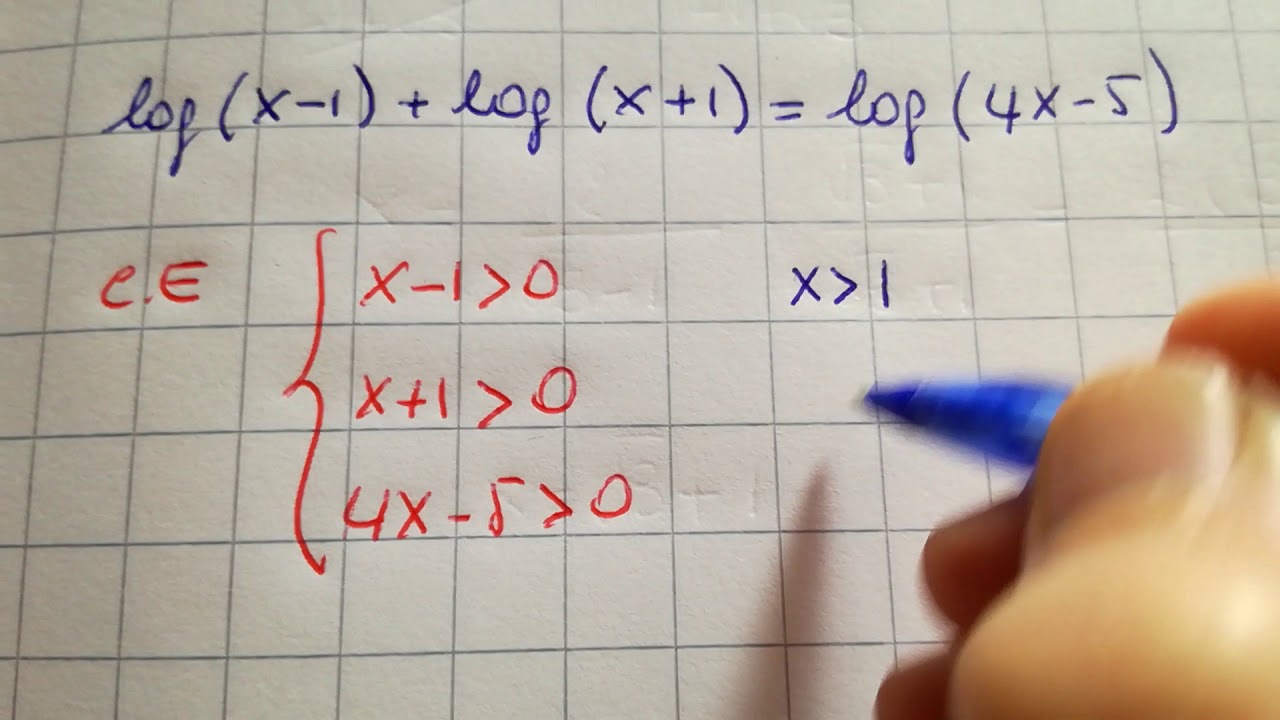 log(x-1) + log(x+1) = log(4x-5)
C.E { x-1>0 x>1
x+1>0
4x-5>0